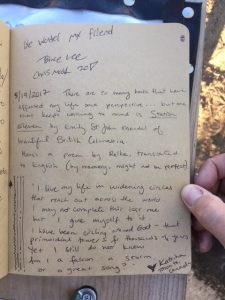 Be water my friend
Bruce Lee
8/19/2017 There are so many books that have
affected my life and perspective... but one
that keeps coming to mind is Station
Eleven by Emily St John Mandel of
beautiful British Columbia
Here's a poem by Rilke, translated
to English (by memory, might not be perfect)
"I live my life in widening circles
that reach out across the world
I may not complete this last one
but I give myself to it
I have been circling around God - that
primordial tower for thousands of years
Yet I still do not know
Am I a falcon a storm
or a great song?"